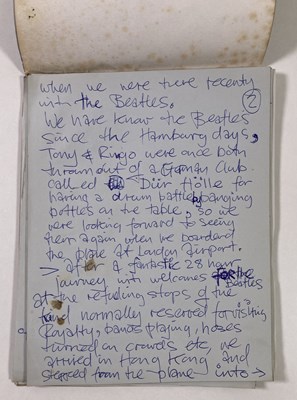 when we were there recently
with the Beatles.
②
We have know the Beatles
since the Hamburg days,
Tony & Ringo were once both
thrown out of a German Club
called Dür Hölle for
having a drum battle, banging
bottles on the table, so we
were looking forward to seeing
them again when we boarded
the plane at London Airport.
> after a fantastic 28 hour
journey with welcomes for the
Beatles
at the refueling stops of the
kind normally reserved for visiting
Royalty, bands playing, hoses
turned on crowds etc, we
arrived in Hong Kong and
stepped from the plane into →